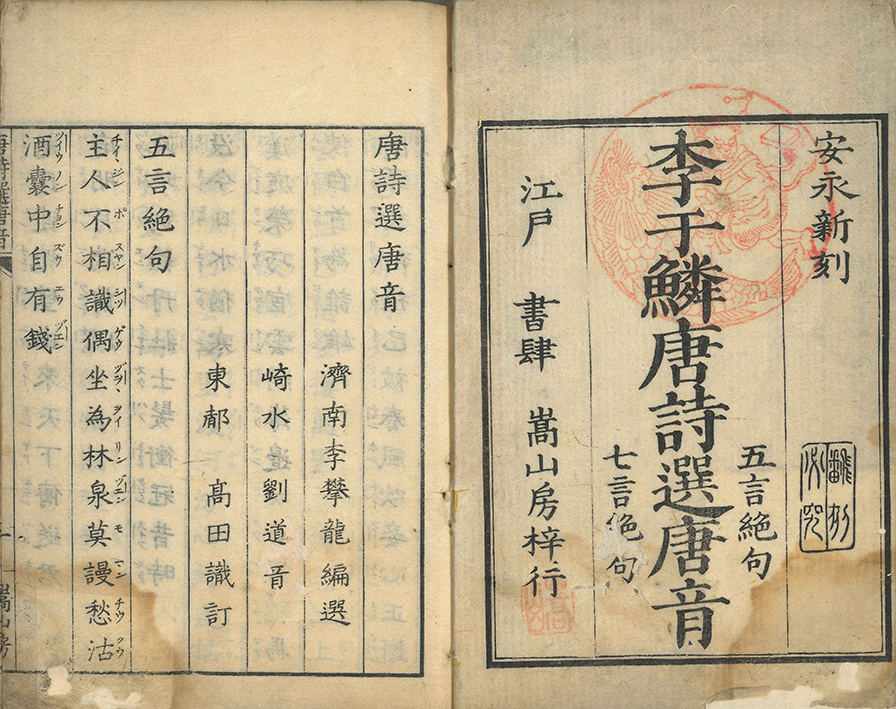 安永新刻
飜刻必究
李于鱗唐詩選唐音
五言絶句
七言絶句
江戸 書肆 嵩山房梓行
唐詩選唐音
濟南李攀龍編選
崎水劉道音
東都 髙田識訂
五言絶句
チイ ジン ポ スヤン シツ ゲウ ヅヲ ヲイ リン ヅエン モ マン チウ クウ
主人不相識偶坐為林泉莫謾愁沽
ツイウ ノン チヨン ズウ ユウ ヅエン
酒囊中自有錢
唐詩選唐音 一 嵩山房